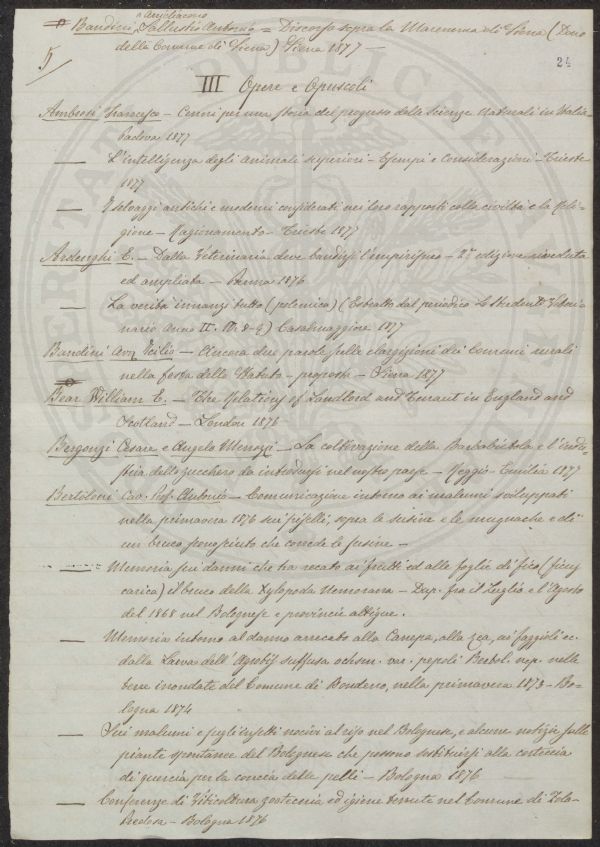 Arcidiacono
Bandini, Sallustio Antonio = Discorso sopra la Maremma di Siena (Dono
della Comune di Siena) Siena 1877 —
5
24
III Opere e Opuscoli
Ambrosi Francesco — Cenni per una storia del progresso delle Scienze Naturali in Italia —
Padova 1877
— L'intelligenza degli animali superiori — Esempi e Considerazioni — Trieste
1877
— I selvaggi antichi e moderni considerati nei loro rapporti colla civiltà e la Reli-
gione — Ragionamento — Trieste 1877
Ardenghi E. — Dalla Veterinaria deve bandirsi l'empirismo — 2a edizione riveduta
ed ampliata — Parma 1876
— La verità innanzi tutto (polemica) (Estratto dal periodico Lo Studente Veteri-
nario Anno II. N. 8-9) Casalmaggiore 1877
Bandini — Ancora due parole sulle elargizioni dei Comuni rurali
nella festa dello Statuto — proposta — Siena 1877
Bear William E. — The Relations of Landlord and Tenant in England and
Scotland — London 1876
Bergonzi Cesare e Angelo Menozzi — La coltivazione della Barbabietola e l'indu-
stria dello zucchero da introdursi nel nostro paese — Reggio-Emilia 1877
Bertoloni Cav. Prof. Antonio — Comunicazione intorno ai malanni sviluppati
nella primavera 1876 sui piselli, sopra le susine e le mugnache e di
un bruco che corrode le susine —
— Memoria sui danni che ha recato ai frutti ed alle foglie di fico (ficus
carica) il bruco della Xylopoda Nemorana — Dup. fra il Luglio e l'Agosto
del 1868 nel Bolognese e provincie attigue.
— Memoria intorno al danno arrecato alla Canepa, alla zea, ai faggioli ec.
dalla Larva dell'Agrotis suffusa ochsen. var. pepoli Bertol. nep. nelle
terre inondate del Comune di Bondeno, nella primavera 1873 — Bo-
logna 1874
— Sui malanni e sugli insetti nocivi al riso nel Bolognese, e alcune notizie sulle
piante spontanee del Bolognese che possono sostituirsi alla corteccia
di quercia per la concia delle pelli — Bologna 1876
— Conferenze di Viticoltura zootecnia ed igiene tenute nel Comune di Zola-
Predosa — Bologna 1876